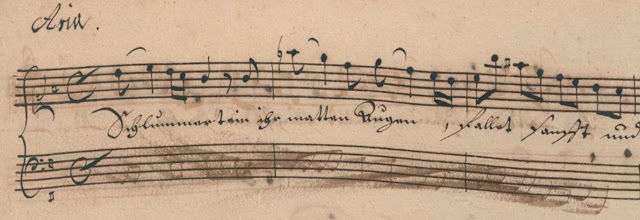 Aria.
Schlummert ein ihr matten Augen, fallet sanfft und